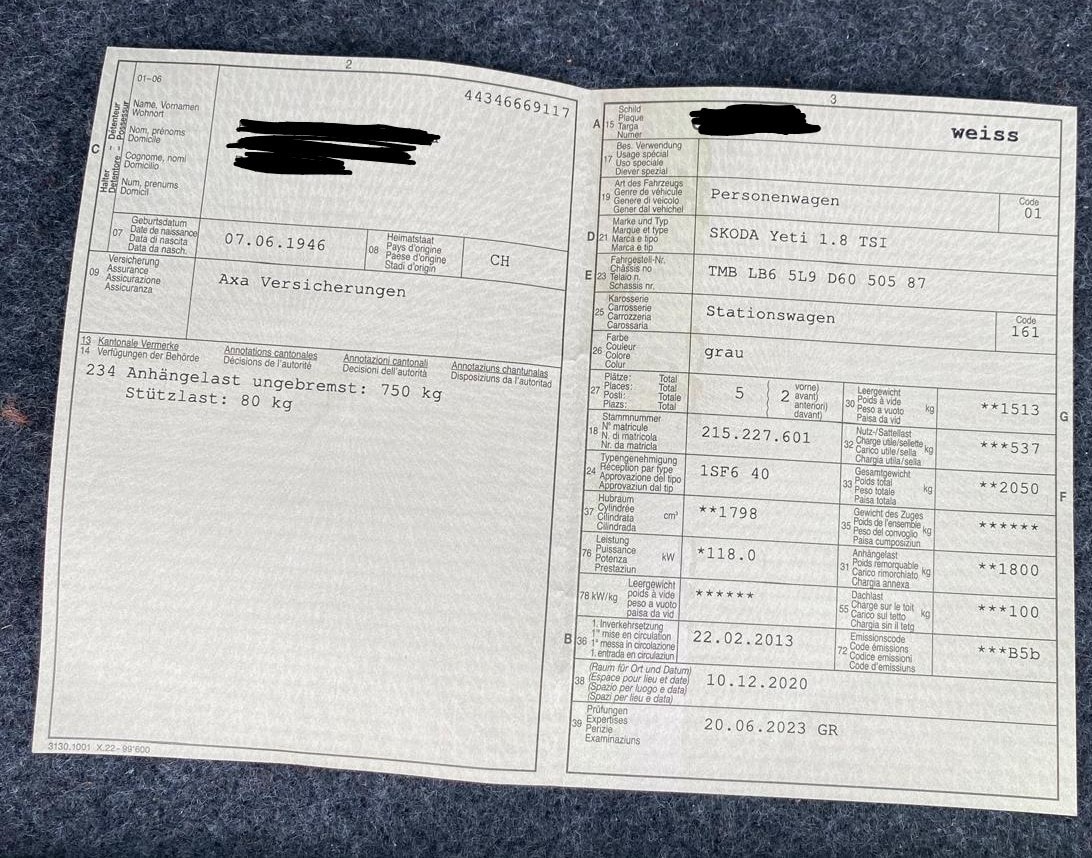 2
01-06
44346669117
C
Halter Détenteur
Detentore Possessur
Name, Vornamen
Wohnort
Nom, prénoms
Domicile
Cognome, nomi
Domicilio
Num, prenums
Domicil
07
Geburtsdatum
Date de naissance
Data di nascita
Data da nasch.
07.06.1946
08
Heimatstaat
Pays d'origine
Paese d'origine
Stadi d'origin
CH
09
Versicherung
Assurance
Assicurazione
Assicuranza
Axa Versicherungen
13 Kantonale Vermerke Annotations cantonales Annotazioni cantonali Annotaziuns chantunalas
14 Verfügungen der Behörde Décisions de l'autorité Decisioni dell'autorità Disposiziuns da l'autoritad
234 Anhängelast ungebremst: 750 kg
Stützlast: 80 kg
3130.1001 X.22- 99'600
3
A 15
Schild
Plaque
Targa
Numer
weiss
17
Bes. Verwendung
Usage spécial
Uso speciale
Diever spezial
19
Art des Fahrzeugs
Genre de véhicule
Genere di veicolo
Gener dal vehichel
Personenwagen
Code
01
D 21
Marke und Typ
Marque et type
Marca e tipo
Marca e tip
SKODA Yeti 1.8 TSI
E 23
Fahrgestell-Nr.
Châssis no
Telaio n.
Schassis nr.
TMB LB6 5L9 D60 505 87
25
Karosserie
Carrosserie
Carrozzeria
Carossaria
Stationswagen
Code
161
26
Farbe
Couleur
Colore
Colur
grau
27
Plätze: Total
Places: Total
Posti: Totale
Plazs: Total
5
2
vorne)
avant)
anteriori)
davant)
30
Leergewicht
Poids à vide
Peso a vuoto
Paisa da vid
kg
**1513
G
18
Stammnummer
N° matricule
N. di matricola
Nr. da matricla
215.227.601
32
Nutz-/Sattellast
Charge utile/sellette
Carico utile/sella
Chargia utila/sella
kg
***537
24
Typengenehmigung
Réception par type
Approvazione del tipo
Approvaziun dal tip
1SF6 40
33
Gesamtgewicht
Poids total
Peso totale
Paisa totala
kg
**2050
F
37
Hubraum
Cylindrée
Cilindrata
Cilindrada
cm³
**1798
35
Gewicht des Zuges
Poids de l'ensemble
Peso del convoglio
Paisa cumposiziun
kg
******
76
Leistung
Puissance
Potenza
Prestaziun
kW
*118.0
31
Anhängelast
Poids remorquable
Carico rimorchiato
Chargia annexa
kg
**1800
78 kW/kg
Leergewicht
poids à vide
peso a vuoto
paisa da vid
******
55
Dachlast
Charge sur le toit
Carico sul tetto
Chargia sin il tetg
kg
***100
B 36
1. Inverkehrsetzung
1re mise en circulation
1a messa in circolazione
1. entrada en circulaziun
22.02.2013
72
Emissionscode
Code émissions
Codice emissioni
Code d'emissiuns
***B5b
38
(Raum für Ort und Datum)
(Espace pour lieu et date)
(Spazio per luogo e data)
(Spazi per lieu e data)
10.12.2020
39
Prüfungen
Expertises
Perizie
Examinaziuns
20.06.2023 GR